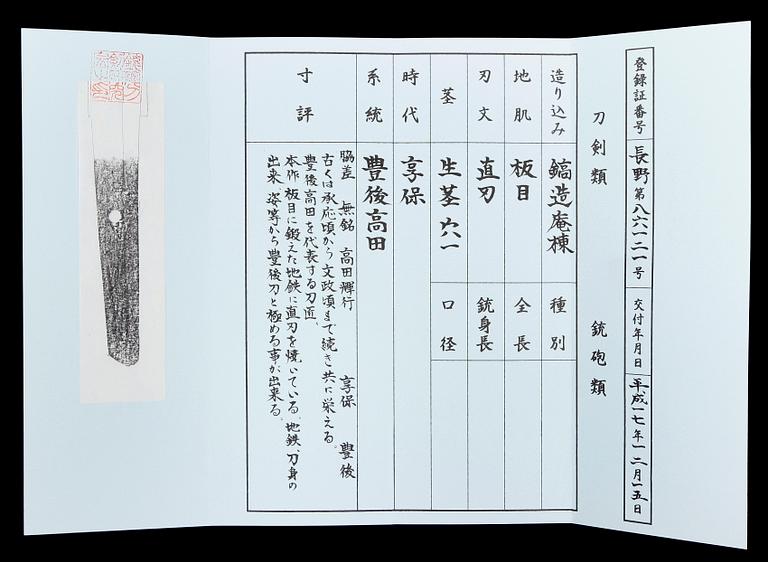 登録証番号 長野 第八六一二一号 交付年月日 平成一七年一二月一五日
刀剣類 銃砲類
造り込み 鎬造庵棟 種別
地肌 板目 全長
刃文 直刃 銃身長
茎 生茎 六一 口径
時代 享保
系統 豊後高田
寸評
脇差 無銘 高田輝行 享保 豊後
古くは承応頃から文政頃まで続き共に栄える。
豊後高田を代表する刀匠、
本作板目に鍛えた地鉄に直刃を焼いている、地鉄、刀身の
出来、姿等から豊後刀と極める事が出来る。